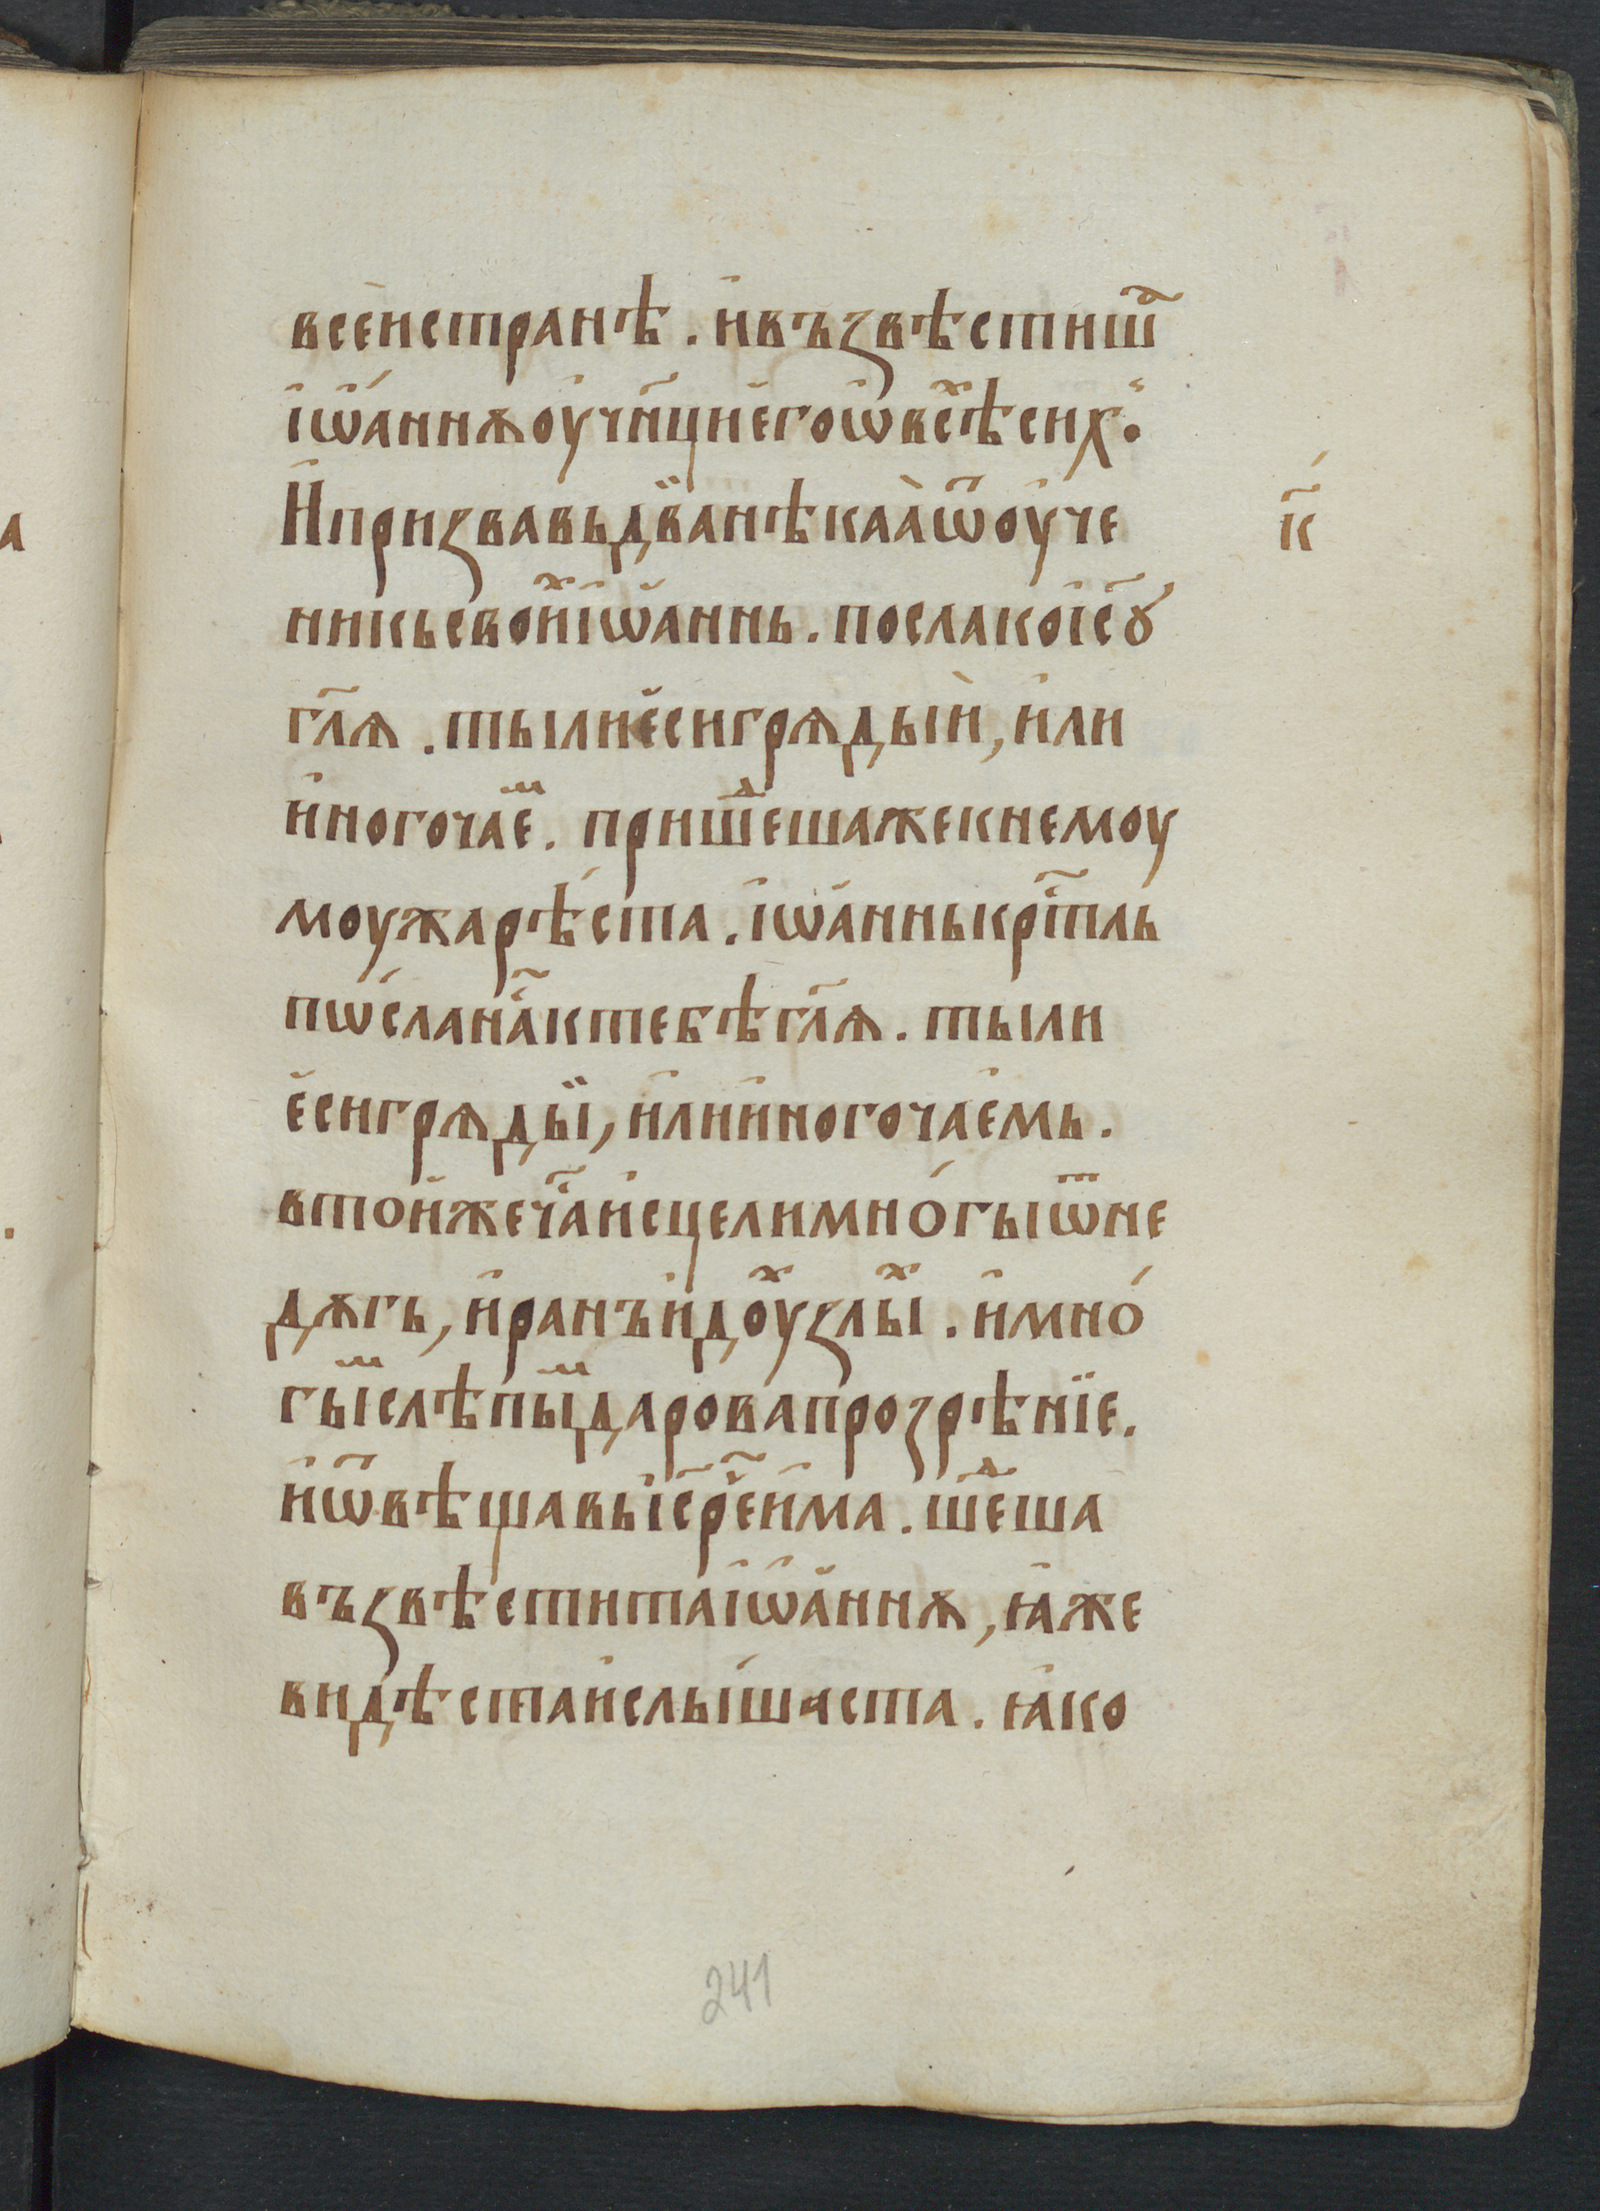 всеѝ странѣ . и҆ въꙁвѣстишⷶ
і҆ѡ҆́аннѫ оу҆чн҃ци е҆го ѡ҆ всѣⷯ сих̾ :
И҆ приꙁвавь два нѣкаа̀ ѿ оу҆че
к҃
никь своиⷯ і҆ѡ҆аннь . посла ко і҆с҃ꙋ
гл҃ѧ . ты ли е҆си грѧдыѝ , и҆ли
и҆ного чаеⷨ . пришеⷣша же к немоу
моужа рѣ́ста . і҆ѡ҆аннь крⷭ҇тль
пѡ́сла наⷭ҇ к тебѣ гл҃ѧ . ты ли
е҆си грѧдыї , и҆ли и҆ного чаемь .
в тои же чаⷭ҇ и҆сцели мнѡ́гы ѿ не
дѫгь , и҆ ранъ и҆ доу҆хⷯ ꙁлыⷯ . и҆ мно́
гыⷨ слѣпыⷨ дарова проꙁрѣнїе .
и҆ ѿвѣщавь і҆с҃ рⷱ҇е и҆ма . шеⷣша
въꙁвѣстита і҆ѡ҆аннѫ , ꙗ҆же
видѣста и҆ слы́шаста . ꙗ҆ко
241